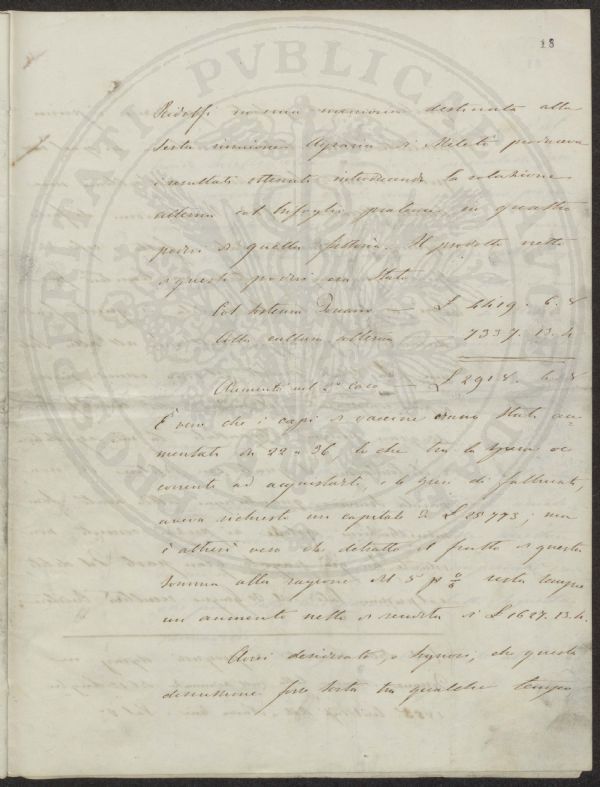 18
Ridolfi in una memoria destinata alla
sesta riunione Agraria di Meleto produceva
i resultati ottenuti introducendo la rotazione
alterna col trifoglio pratense in quattro
poderi di quella fattoria. Il prodotto netto
di questi poderi era stato
Col sistema — £ 4419. 6. 8
Colla cultura alterna 7337. 13. 4
Aumento nel 2° caso — £ 2918. 6. 8
È vero che i capi di vaccine erano stati au=
mentati da 22 a 36 lo che tra la spesa oc
corrente ad acquistarli, e le spese di fabbricati,
aveva richiesto un capitale di £ 25773; ma
è altresì vero che detratto il frutto di questa
somma alla ragione del 5 p % resta sempre
un aumento netto di rendita di £ 1627. 13. 4.
Avrei desiderato, o Signori, che questa
discussione fosse sorta tra qualche tempo